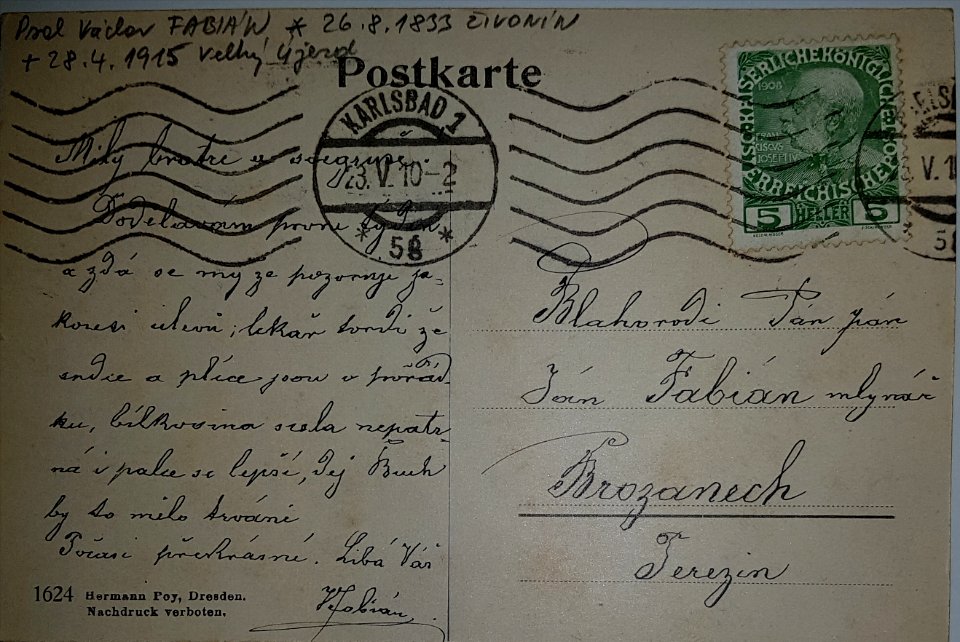 Psal Václav FABIÁN * 26.8.1833 ŽIVONÍN
+ 28.4.1915 Velký Újezd
Postkarte
KARLSBAD 1
23. V. 10-2
* 5g *
1908
KAISERLICHEKÖNIGLICHE
ÖSTERREICHISCHEPOST
5 HELLER 5
V. 10
Milý bratře a
Dodělávám první týden
a zdá se my ze pozoruje ja-
kousi ulevu; lekař tvrdí že
srdce a plíce jsou v pořád-
ku, bílkovina zcela nepatr-
ná i palce se lepší, Dej Buch
by to mělo trvání
Počasí překrásné. Libá Váš
VFabián
Blahorodí Pan pán
Ján Fabián mlynář
Brozanech
Terezin
1624 Hermann Poy, Dresden.
Nachdruck verboten.